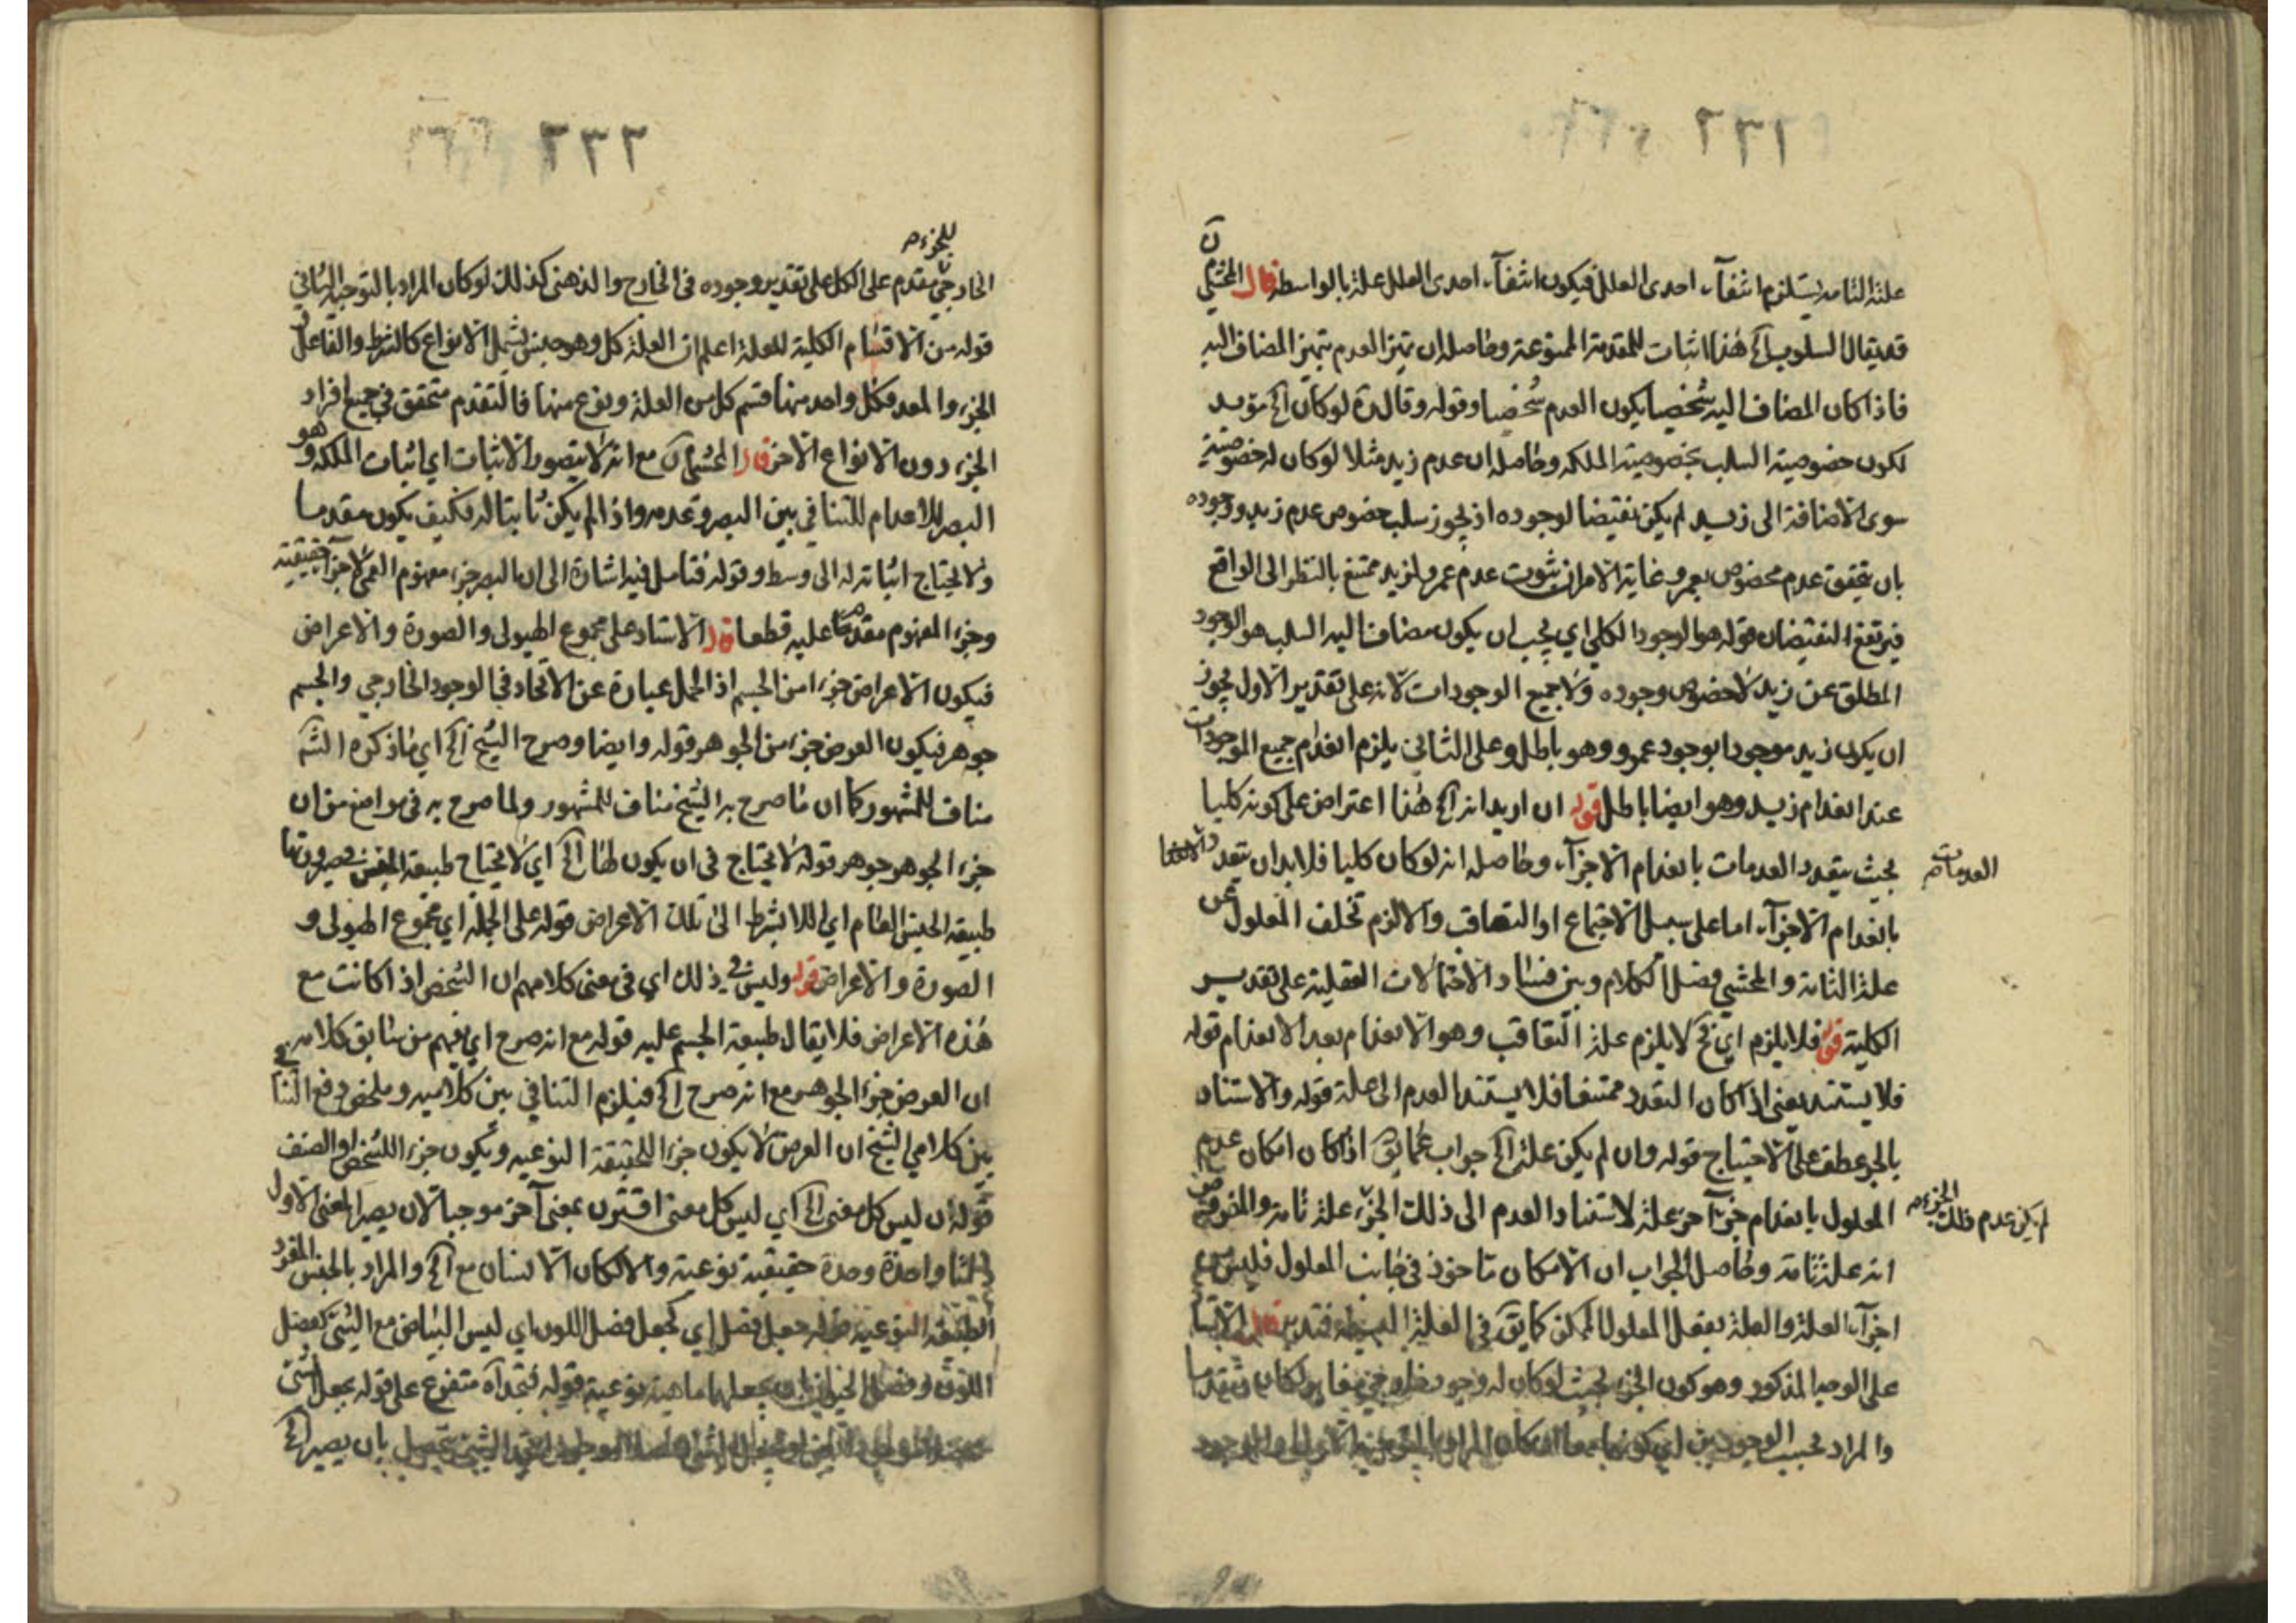 ٢٦٦١
علته التامة يستلزم انتفآء احدى العلل فيكون انتفآء احدى العلل علة بالواسطة قال المحشي
قد يقال السلوب آلخ هذا اثبات للمقدمة الممنوعة وحاصله ان تميز العدم بتميز المضاف اليه
فاذا كان المضاف اليه شخصيا يكون العدم شخصيا وقوله وقالدة لو كان آلخ مؤيد
لكون خصوصية السلب بخصوصية الملكة وحاصله ان عدم زيد مثلا لو كان له خصوصية
سوى الاضافة الى زيد لم يكن نقيضا لوجوده اذ يجوز سلب خصوص عدم زيد ووجوده
بان يتحقق عدم مخصوص بعمرو غاية الامر ان ثبوت عدم عمرو لزيد ممتنع بالنظر الى الواقع
فيرتفع النقيضان قوله هو الوجود الكلي اي يجب ان يكون مضاف اليه السلب هو الوجود
المطلق عن زيد لا خصوص وجوده ولا جميع الوجودات لانه على تقدير الاول يجوز
ان يكون زيد موجودا بوجود عمرو وهو باطل وعلى الثاني يلزم انعدام جميع الموجودات
عند انعدام زيد وهو ايضا باطل قوله ان اريد انه آلخ هذا اعتراض على كونه كليا
بحيث يتعدد العدمات بانعدام الاجزآء وحاصله انه لو كان كليا فلا بد ان يتعدد
العدمات
بانعدام الاجزآء اما على سبيل الاجتماع او التعاقب والا لزم تخلف المعلول عن
علته التامة والمحشي فصل الكلام وبين فساد الاحتمالات العقلية على تقدير
الكلية قوله فلا يلزم اي ح لا يلزم علة التعاقب وهو الانعدام بعد الانعدام قوله
فلا يستند يعني اذا كان التعدد ممتنعا فلا يستند العدم الى علة قوله والاستناد
بالجر عطف على الاحتياج قوله وان لم يكن علة آلخ جواب عما يق اذا كان امكان عدم
المعلول بانعدام جزء آخر علة لاستناد العدم الى ذلك الجزء علة تامة والمفروض
لم يكن عدم ذلك الجزء
انه علة تامة وحاصل الجواب ان الامكان مأخوذ في جانب المعلول فليس
اجزآء العلة والعلة بفعل المعلول الممكن كما يق في العلة البسيطة فتدبر قال
على الوجه المذكور وهو كون الجزء بحيث لو كان له وجود خارجي مغاير لكان متقدما
والمراد بحسب الوجودين
٢٣٢
للجزء
الخارجي مقدم على الكل على تقدير وجوده في الخارج والذهني كذلك لو كان المراد بالتوجيه الثاني
قوله من الاقسام الكلية للعلة اعلم ان العلة كل وهو جنس يشمل الانواع كالشرط والفاعل
الجزء والمعد فكل واحد منها قسم كل من العلة ونوع منها فالتقدم متحقق في جميع افراد
الجزء دون الانواع الاخر قال المحشي آلخ مع انه لا يتصور الاثبات اي اثبات الملكة وهو
البصر للاعدام للتنافي بين البصر وعدمه واذا لم يكن ثابتا له فكيف يكون مقدما
ولا يحتاج اثباته له الى وسط وقوله فتأمل فيه اشارة الى ان البصر جزء مفهوم العمى لا جزء حقيقته
وجزء المفهوم مقدم عليه قطعا قال الاستاد على مجموع الهيولى والصورة والاعراض
فيكون الاعراض جزءا من الجسم اذ الحمل عبارة عن الاتحاد في الوجود الخارجي والجسم
جوهر فيكون العرض جزء من الجوهر قوله وايضا وصرح الشيخ آلخ اي ما ذكره الشه
مناف للمشهور كما ان ما صرح به الشيخ مناف للمشهور ولما صرح به في مواضع من ان
جزء الجوهر جوهر قوله لا يحتاج في ان يكون طا آلخ اي لا يحتاج طبيعة الجنس في صيرورتها
طبيعة الجنس العام اي اللابشرط الى تلك الاعراض قوله على الجملة اي مجموع الهيولى و
الصورة والاعراض قوله وليس في ذلك اي في معنى كلامهم ان الشخص اذا كانت مع
هذه الاعراض فلا يقال طبيعة الجسم عليه قوله مع انه صرح اي يفهم من سابق كلامه
ان العرض جزء الجوهر مع انه صرح آلخ فيلزم التنافي بين كلاميه وملخص دفع
بين كلامي الشيخ ان العرض لا يكون جزء الحقيقة النوعية ويكون جزء الشخص او الصنف
قوله ان ليس كل معنى آلخ اي ليس كل معنى اقترن بمعنى آخر موجبا لان يصير المعنى الاول
واحدة وحدة حقيقية نوعية والا لكان الانسان مع آلخ والمراد بالجنس المفرد
الطبيعة النوعية قوله جعل فصل اي كجعل فصل اللون اي ليس البياض مع الشيء كفصل
اللون وفصل الحيوان يجعلهما ماهية نوعية قوله متفرع على قوله بجعل
بان يصير آلخ